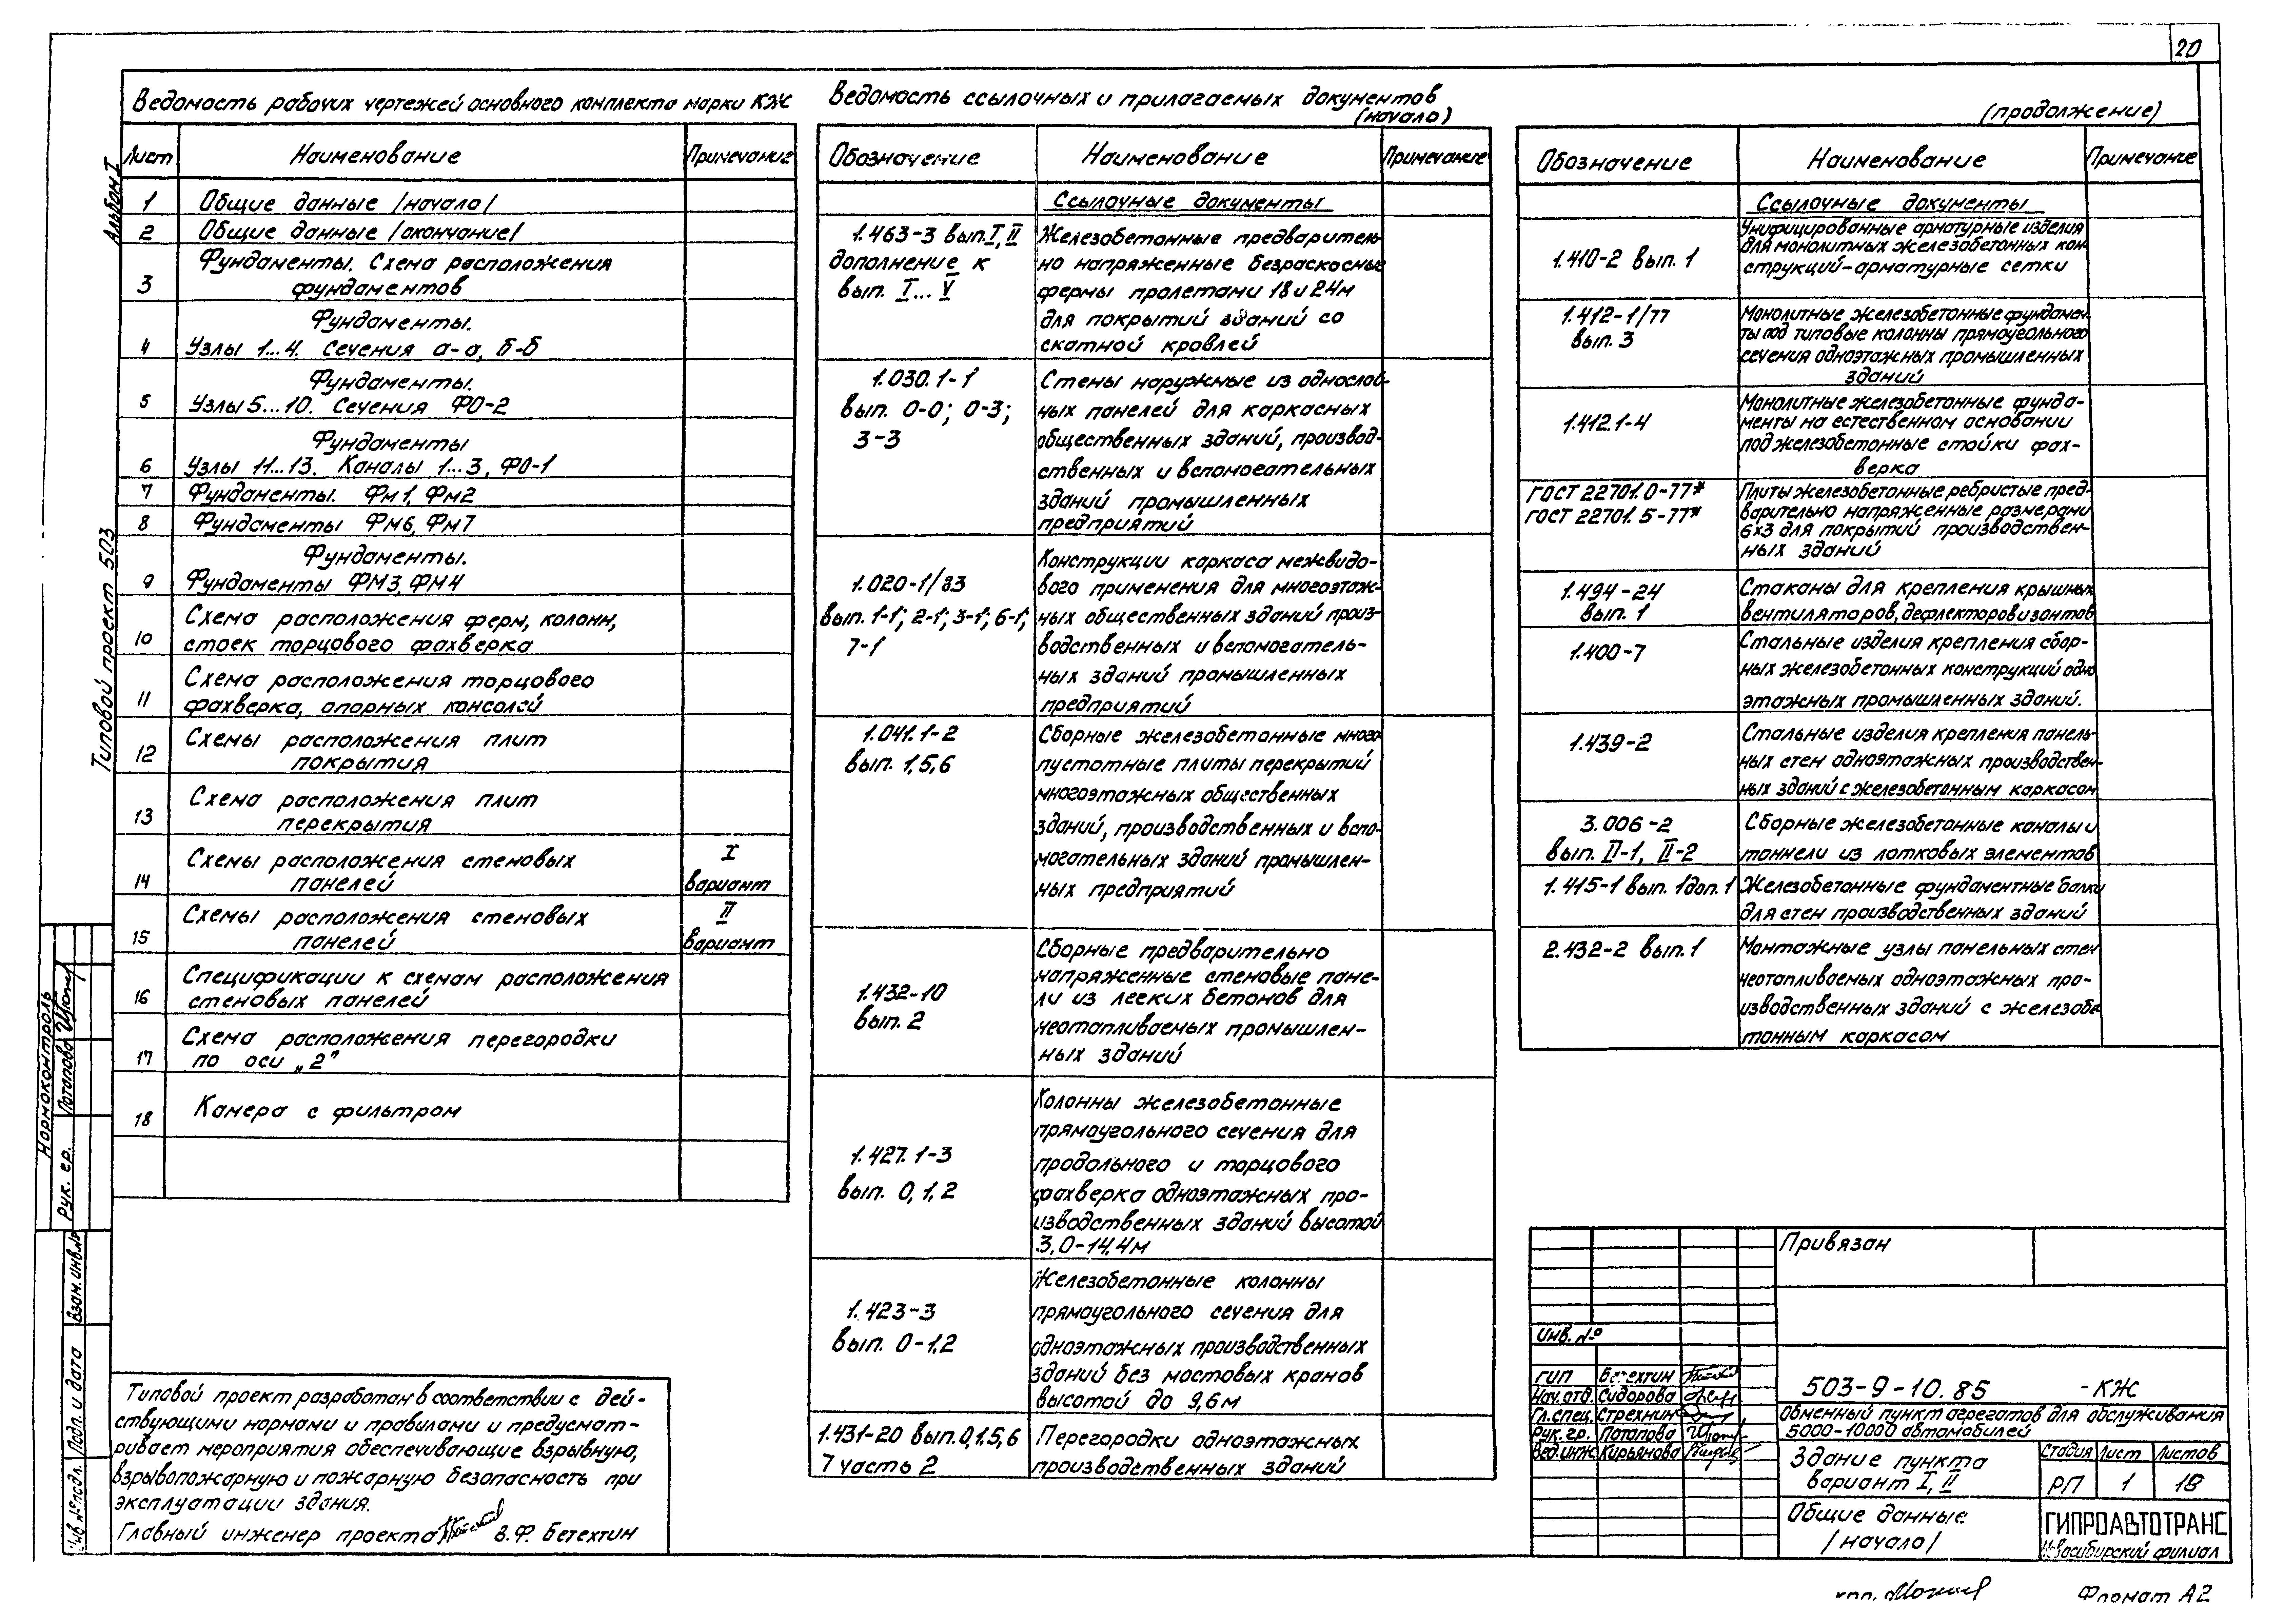 20
Ведомость рабочих чертежей основного комплекта марки КЖ
Лист Наименование Примечание
1 Общие данные /начало/
2 Общие данные /окончание/
Фундаменты. Схема расположения
3 фундаментов
Фундаменты.
4 Узлы 1...4. Сечения а-а, б-б
Фундаменты.
5 Узлы 5...10. Сечения ФО-2
Фундаменты
6 Узлы 11...13. Каналы 1...3, ФО-1
7 Фундаменты. Фм1, Фм2
8 Фундаменты Фм6, Фм7
Фундаменты.
9 Фундаменты ФМ3, ФМ4
Схема расположения ферм, колонн,
10 стоек торцового фахверка
Схема расположения торцового
11 фахверка, опорных консолей
Схемы расположения плит
12 покрытия
Схема расположения плит
13 перекрытия
Схемы расположения стеновых I
14 панелей вариант
Схемы расположения стеновых II
15 панелей вариант
Спецификации к схемам расположения
16 стеновых панелей
Схема расположения перегородки
17 по оси „2"
18 Камера с фильтром
Типовой проект разработан в соответствии с дей-
ствующими нормами и правилами и предусмат-
ривает мероприятия обеспечивающие взрывную,
взрывопожарную и пожарную безопасность при
эксплуатации здания.
Главный инженер проекта В.Ф. Бетехтин
Ведомость ссылочных и прилагаемых документов
(начало)
Обозначение Наименование Примечание
Ссылочные документы
1.463-3 вып. I, II Железобетонные предваритель-
дополнение к но напряженные безраскосные
вып. I...V фермы пролетами 18 и 24м
для покрытий зданий со
скатной кровлей
1.030.1-1 Стены наружные из однослой-
вып. 0-0; 0-3; ных панелей для каркасных
3-3 общественных зданий, производ-
ственных и вспомогательных
зданий промышленных
предприятий
Конструкции каркаса межвидо-
1.020-1/83 вого применения для многоэтаж-
вып. 1-1; 2-1; 3-1; 6-1; ных общественных зданий произ-
7-1 водственных и вспомогатель-
ных зданий промышленных
предприятий
1.041.1-2 Сборные железобетонные много-
вып. 1,5,6 пустотные плиты перекрытий
многоэтажных общественных
зданий, производственных и вспо-
могательных зданий промышлен-
ных предприятий
Сборные предварительно
напряженные стеновые пане-
1.432-10 ли из легких бетонов для
вып. 2 неотапливаемых промышлен-
ных зданий
Колонны железобетонные
прямоугольного сечения для
1.427.1-3 продольного и торцового
вып. 0,1,2 фахверка одноэтажных про-
изводственных зданий высотой
3,0-14,4м
Железобетонные колонны
1.423-3 прямоугольного сечения для
вып. 0-1,2 одноэтажных производственных
зданий без мостовых кранов
высотой до 9,6м
1.431-20 вып. 0,1,5,6 Перегородки одноэтажных
7 часть 2 производственных зданий
(продолжение)
Обозначение Наименование Примечание
Ссылочные документы
Унифицированные арматурные изделия
1.410-2 вып. 1 для монолитных железобетонных кон-
струкций-арматурные сетки
1.412-1/77 Монолитные железобетонные фундамен-
вып. 3 ты под типовые колонны прямоугольного
сечения одноэтажных промышленных
зданий
Монолитные железобетонные фунда-
1.412.1-4 менты на естественном основании
под железобетонные стойки фах-
верка
ГОСТ 22701.0-77* Плиты железобетонные ребристые пред-
ГОСТ 22701.5-77* варительно напряженные размерами
6х3 для покрытий производствен-
ных зданий
1.494-24 Стаканы для крепления крышных
вып. 1 вентиляторов, дефлекторов и зонтов
1.400-7 Стальные изделия крепления сбор-
ных железобетонных конструкций одно
этажных промышленных зданий.
1.439-2 Стальные изделия крепления панель-
ных стен одноэтажных производствен-
ных зданий с железобетонным каркасом
3.006-2 Сборные железобетонные каналы и
вып. II-1, II-2 тоннели из лотковых элементов
1.415-1 вып. 1 доп. 1 Железобетонные фундаментные балки
для стен производственных зданий
2.432-2 вып. 1 Монтажные узлы панельных стен
неотапливаемых одноэтажных про-
изводственных зданий с железобе
тонным каркасом
Привязан
Инв. №
ГИП Бетехтин
Нач.отд. Сидорова
Гл.спец. Стрехнин
Рук. гр. Потапова
Вед.инж Кирьянова
503-9-10.85 -КЖ
Обменный пункт агрегатов для обслуживания
5000-10000 автомобилей
Здание пункта
вариант I, II
Стадия Лист Листов
РП 1 18
Общие данные
/начало/
ГИПРОАВТОТРАНС
Новосибирский филиал
Формат А2
Альбом I
Типовой проект 503
Нормоконтроль
Рук. гр. Потапова
Взам. инв. №
Подп. и дата
Инв. № подл.